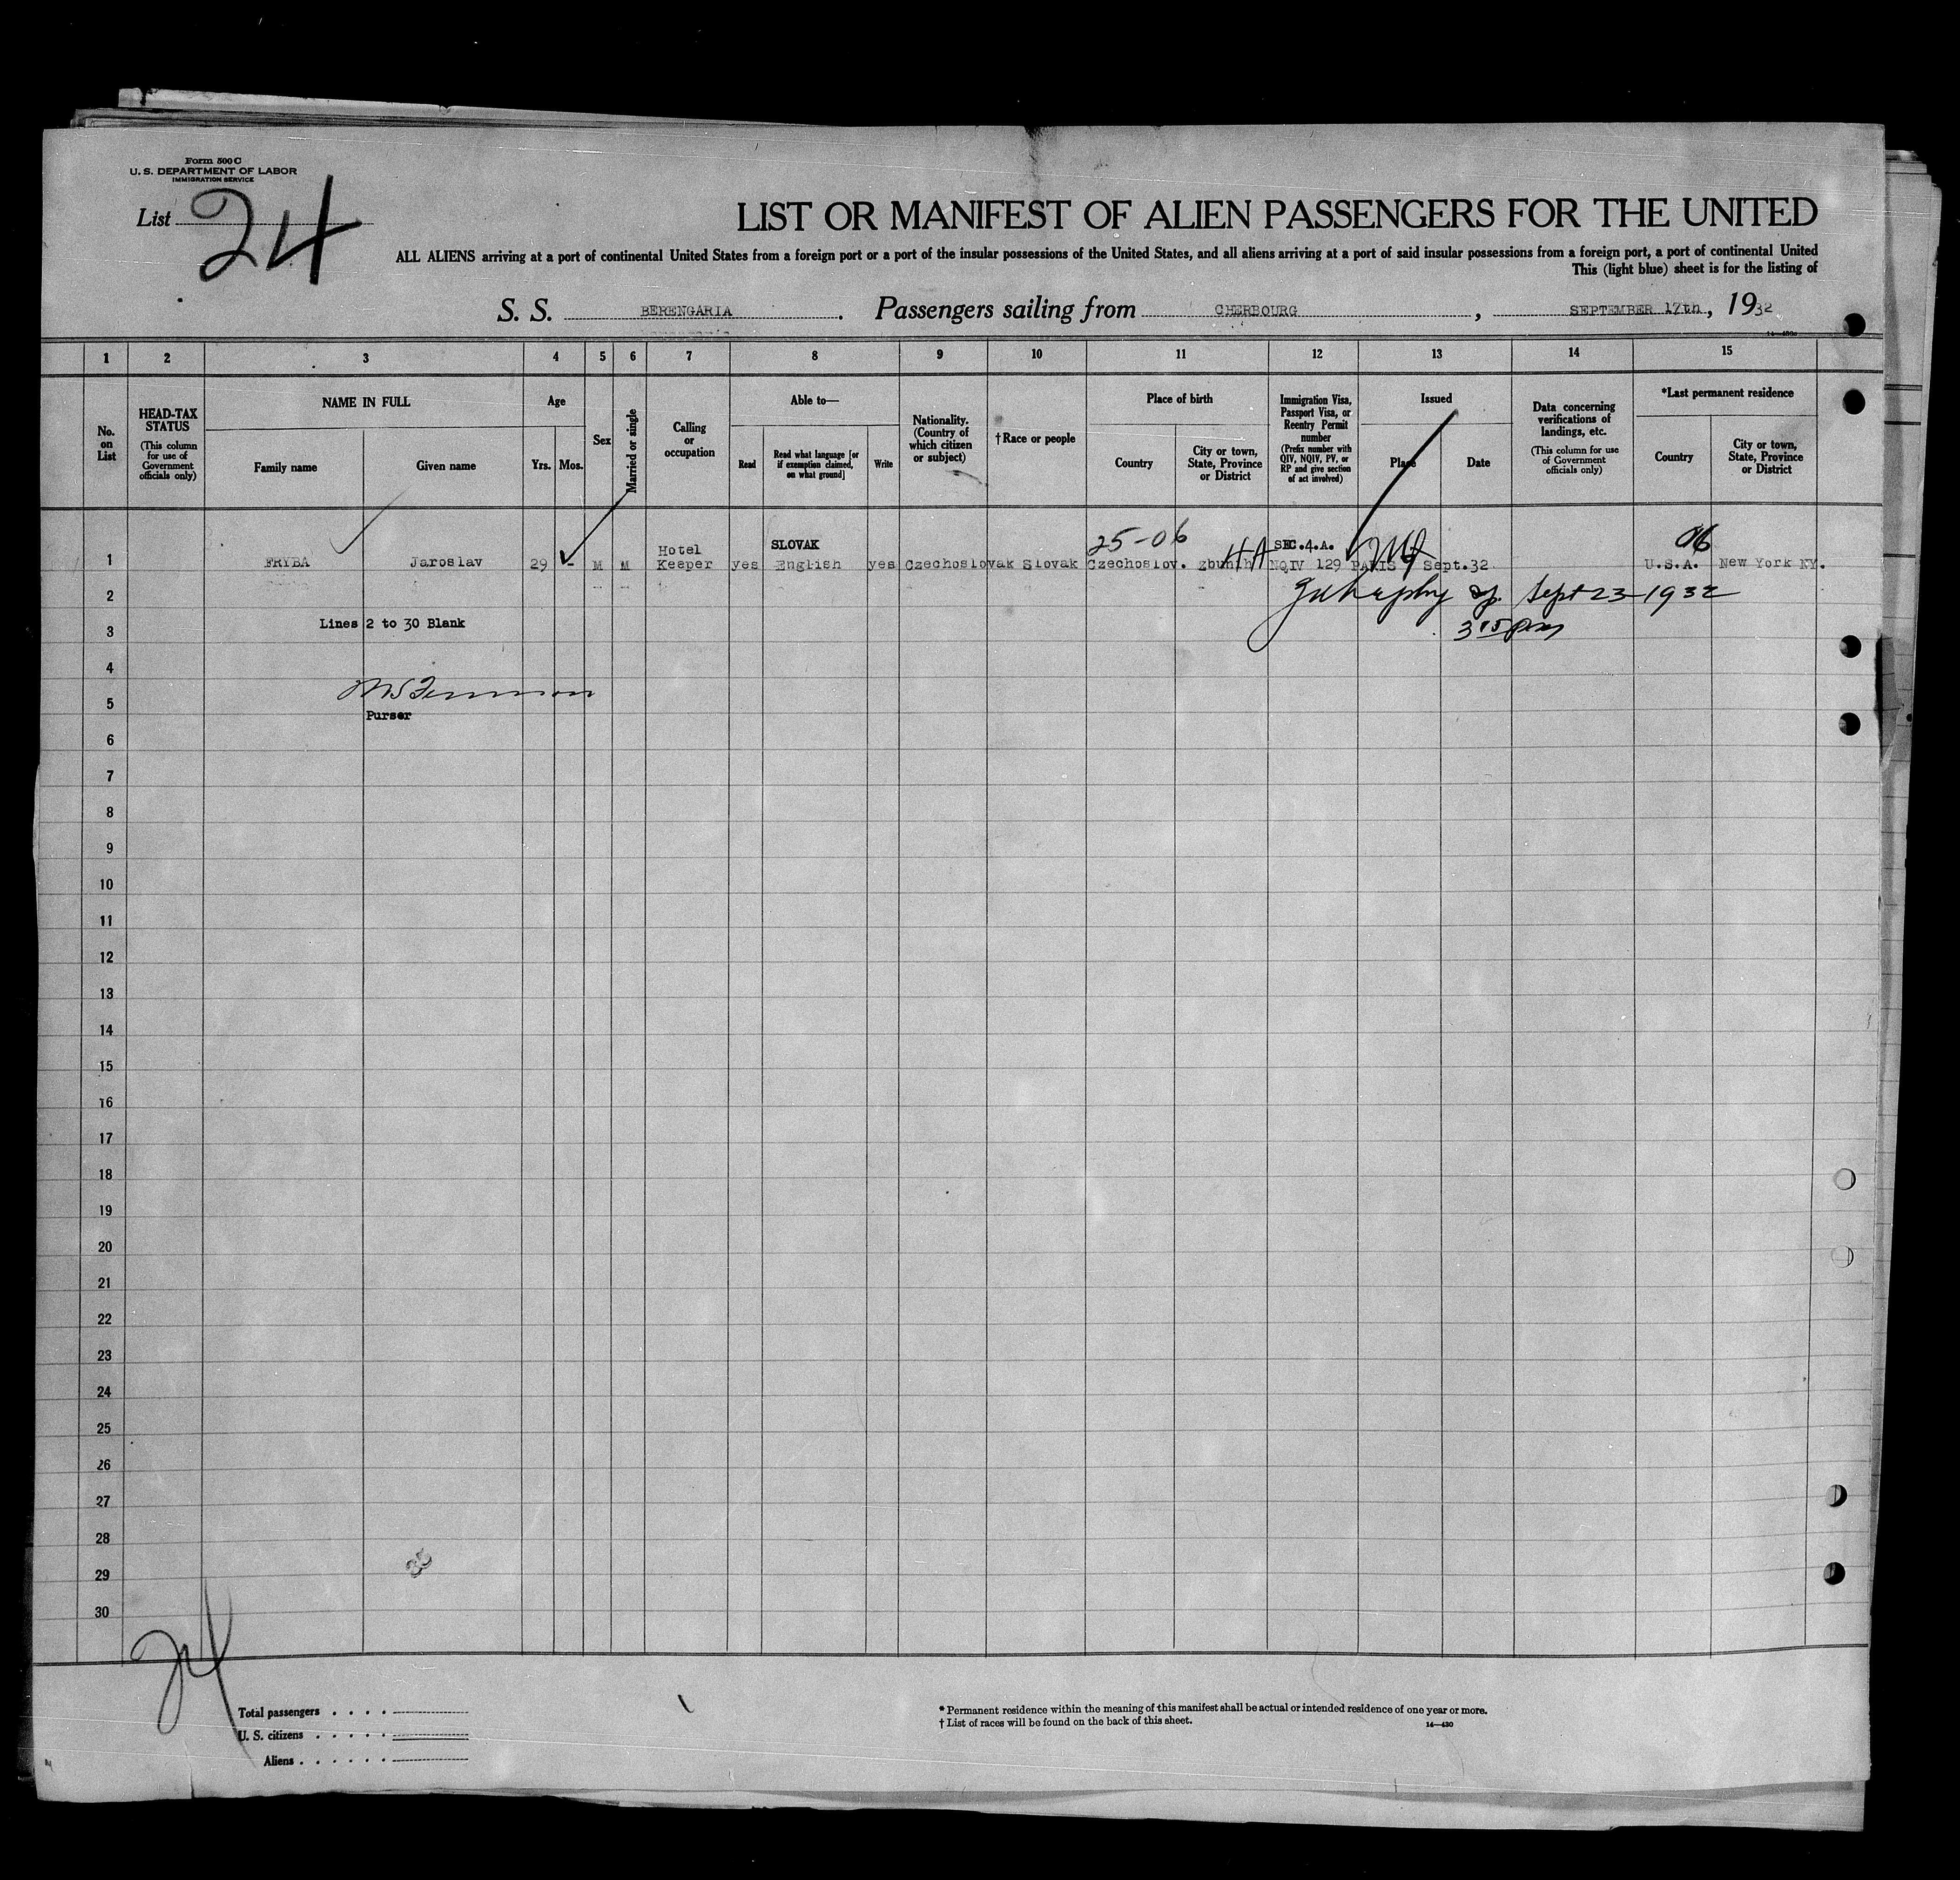 Form 500 C
U. S. DEPARTMENT OF LABOR
IMMIGRATION SERVICE
List 24
LIST OR MANIFEST OF ALIEN PASSENGERS FOR THE UNITED
ALL ALIENS arriving at a port of continental United States from a foreign port or a port of the insular possessions of the United States, and all aliens arriving at a port of said insular possessions from a foreign port, a port of continental United
This (light blue) sheet is for the listing of
S. S. BERENGARIA. Passengers sailing from CHERBOURG, SEPTEMBER 17th, 1932
1 2 3 4 5 6 7 8 9 10 11 12 13 14 15
No. on List
HEAD-TAX STATUS
(This column for use of Government officials only)
NAME IN FULL
Family name Given name
Age
Yrs. Mos.
Sex
Married or single
Calling or occupation
Able to—
Read
Read what language [or if exemption claimed, on what ground]
Write
Nationality. (Country of which citizen or subject)
†Race or people
Place of birth
Country
City or town, State, Province or District
Immigration Visa, Passport Visa, or Reentry Permit number
(Prefix number with QIV, NQIV, PV, or RP and give section of act involved)
Issued
Place Date
Data concerning verifications of landings, etc.
(This column for use of Government officials only)
*Last permanent residence
Country
City or town, State, Province or District
25-06 06
Hotel SLOVAK 4A SEC.4.A.
1 FRYBA Jaroslav 29 - M M Keeper yes English yes Czechoslovak Slovak Czechoslov. NQIV 129 PARIS Sept.32 U.S.A. New York NY.
2 Sept 23-1932
Lines 2 to 30 Blank
3 3 15 pm
4
5
Purser
6
7
8
9
10
11
12
13
14
15
16
17
18
19
20
21
22
23
24
25
26
27
28
29
30
24
Total passengers . . . .
U. S. citizens . . . . .
Aliens . . . . . .
* Permanent residence within the meaning of this manifest shall be actual or intended residence of one year or more.
† List of races will be found on the back of this sheet.
14—430